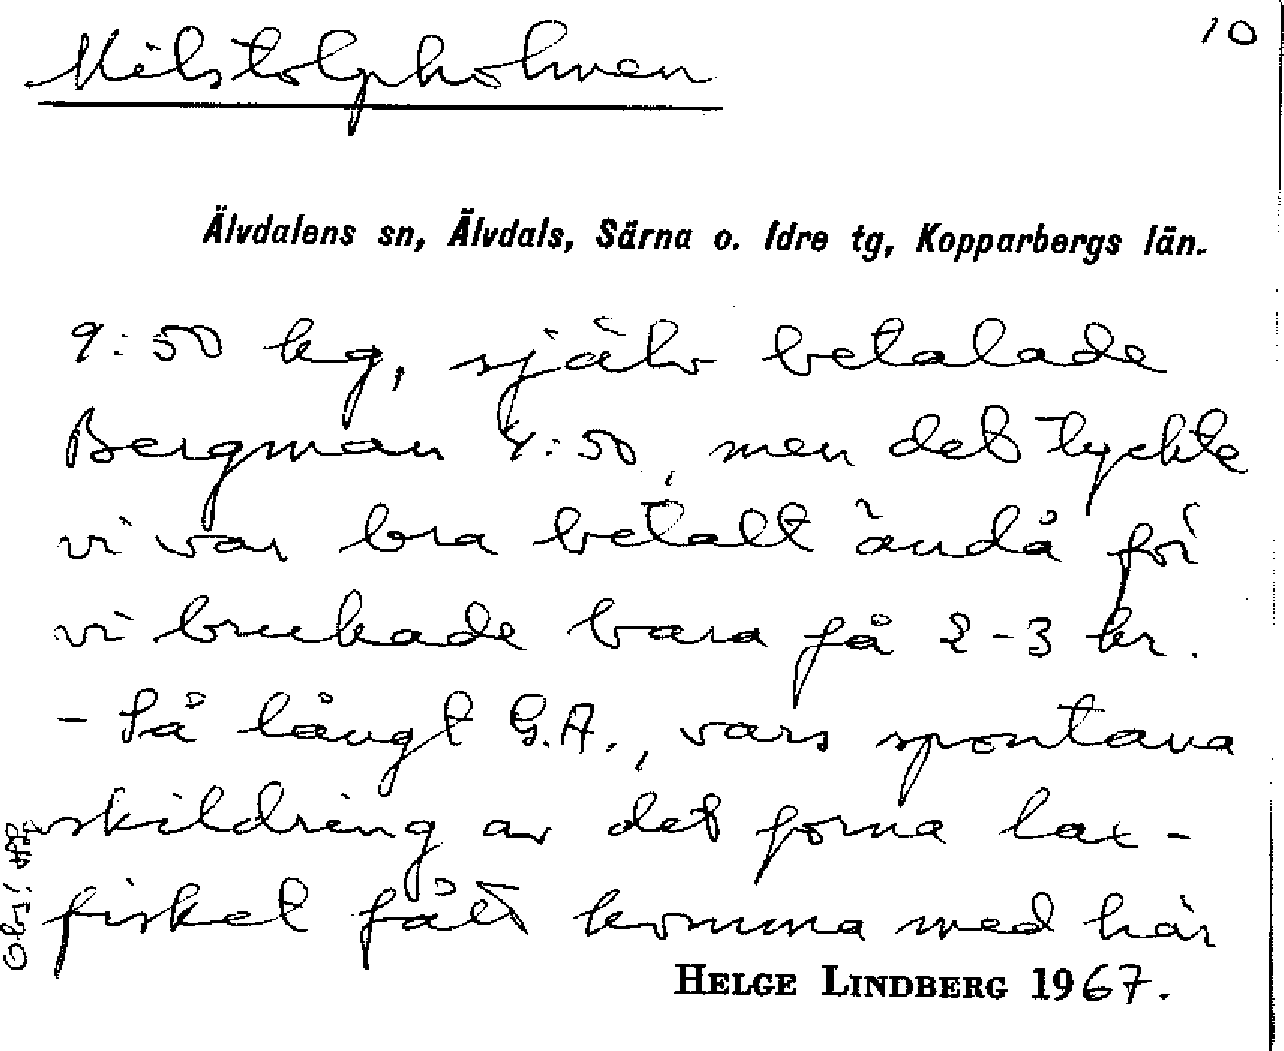 10
Milstolpholmen
Älvdalens sn, Älvdals, Särna o. Idre tg, Kopparbergs län.
9:50 kg, själv betalade
Bergman 4:50, men det tyckte
vi var bra betalt ändå för
vi brukade bara få 2-3 kr.
- Så långt G.A., vars spontana
skildring av det forna lax-
fisket fått komma med här
Obs!
HELGE LINDBERG 1967.